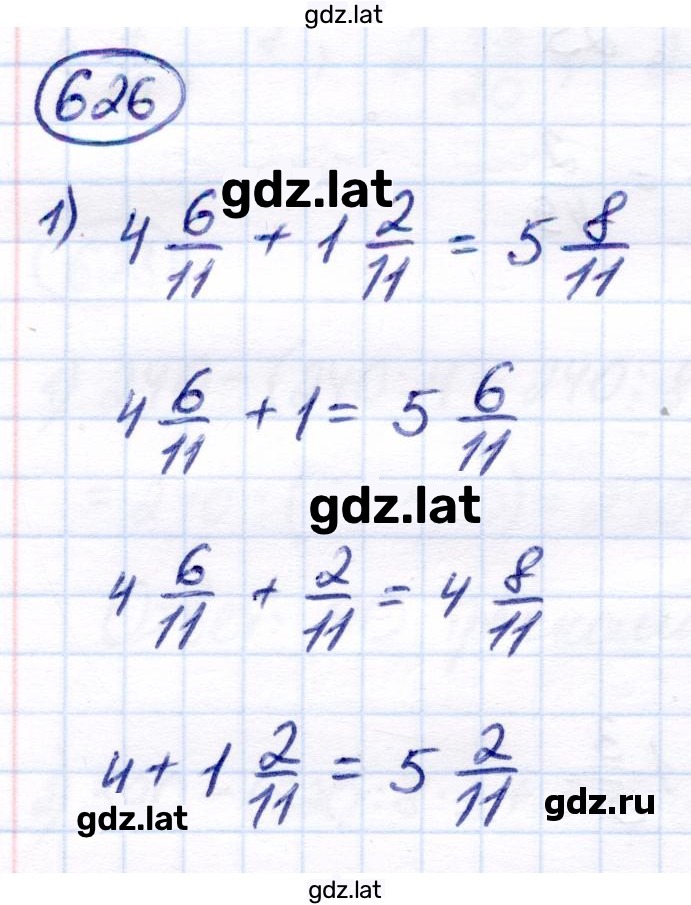 gdz.lat
626
gdz.lat
1) 4 6/11 + 1 2/11 = 5 8/11
4 6/11 + 1 = 5 6/11
gdz.lat
4 6/11 + 2/11 = 4 8/11
4 + 1 2/11 = 5 2/11
gdz.lat
gdz.ru
gdz.lat